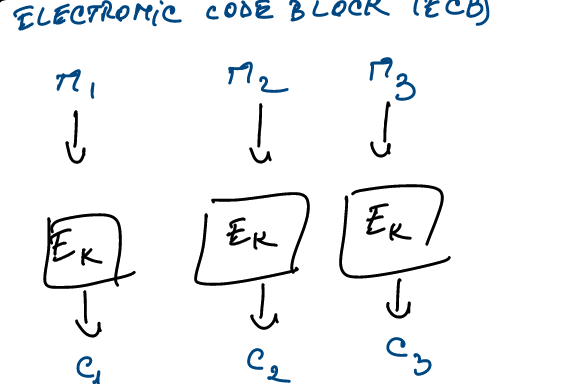 ELECTRONIC CODE BLOCK (ECB)
M1 M2 M3
EK EK EK
C1 C2 C3